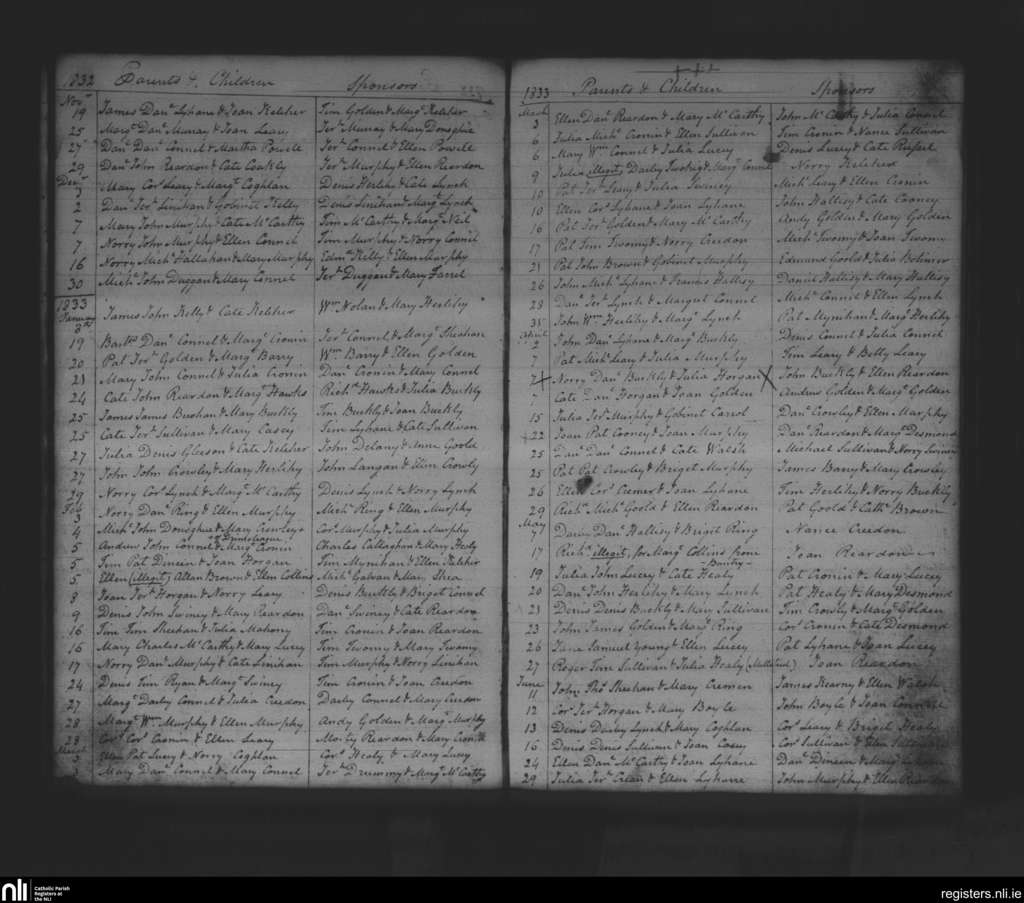 1832 Parents & Children Sponsors
Novr 19 James Danl Lyhane & Joan Keleher Tim Golden & Margt Keleher
25 Margt Danl Murray & Joan Leary Jerh Murray & Mary Donoghue
27 Danl Danl Connel & Martha Powell Jerh Connel & Ellen Powell
29 Danl John Reardon & Cate Coakly Jerh Murphy & Ellen Reardon
Decr 3 Mary Cors Leary & Margt Coghlan Denis Herlihy & Cate Lynch
2 Danl Jerh Linihan & Gobinet Kelly Denis Linihan & Margt Lynch
7 Mary John Murphy & Cate McCarthy Tim McCarthy & Margt Neil
7 Norry John Murphy & Ellen Connel Tim Murphy & Norry Connel
16 Norry Michl Hallahan & Mary Murphy Edmd Kelly & Ellen Murphy
30 Michl John Duggan & Mary Connel Jerh Duggan & Mary
1833
January 8th James John Kelly & Cate Keleher Wm Nolan & Mary Herlihy
19 Barthw Danl Connel & Margt Cronin Jerh Connel & Margt Sheehan
20 Pat Jerh Golden & Margt Barry Wm Barry & Ellen Golden
21 Mary John Connel & Julia Cronin Danl Cronin & Mary Connel
24 Cate John Reardon & Mary Hawks Richd Hawks & Julia Buckly
25 James James Bushan & Mary Buckly Tim Buckly & Joan Buckly
25 Cate Jerh Sullivan & Mary Casey Tim Lyhane & Cate Sullivan
27 Julia Denis Gleeson & Cate Keleher John Delany & Anne Goold
27 John John Crowley & Mary Herlihy John Langan & Ellen Crowly
29 Norry Cors Lynch & Margt McCarthy Denis Lynch & Norry Lynch
Feb 3 Norry Danl Ring & Ellen Murphy Michl Ring & Ellen Murphy
4 Michl John Donoghue & Mary Crowley Cors Murphy & Julia Murphy
5 Andrew John Connel & Margt Cronin Charles Callaghan & Mary Healy
5 Tim Pat Dineen & Joan Horgan Tim Mynihan & Ellen Keleher
5 Ellen (illegit) Allan Brown & Ellen Collins Michl Galvan & Mary Shea
8 Joan Jerh Horgan & Norry Leary Denis Buckly & Briget Connel
9 Denis John Swiney & Mary Reardon Danl Swiney & Cate Reardon
16 Tim Tim Sheehan & Julia Mahony Tim Cronin & Joan Reardon
16 Mary Charles McCarthy & Mary Lucey Tim Twomy & Mary Twomy
17 Norry Danl Murphy & Cate Linihan Tim Murphy & Norry Linihan
24 Denis Tim Ryan & Margt Swiney Tim Cronin & Joan Creedon
27 Margt Darby Connel & Julia Creedon Darby Connel & Mary Creedon
28 Margt Wm Murphy & Ellen Murphy Andy Golden & Margt Murphy
28 Cors Cors Cronin & Ellen Leary Reardon & Mary
March 3 Ellen Pat Lucey & Norry Coghlan Cors Healy & Mary Lucey
3 Mary Danl Connel & Mary Connel Jerh Drummy & Margt McCarthy
1833 Parents & Children Sponsors
March 3 Ellen Danl Reardon & Mary McCarthy John McCarthy & Julia Connel
6 Julia Michl Cronin & Ellen Sullivan Tim Cronin & Nance Sullivan
6 Mary Wm Connel & Julia Lucey Denis Lucey & Cate
9 Julia illegit Darby & Margt Connel Norry Keleher
10 Pat Jerh Leary & Julia Swiney Michl Leary & Ellen Cronin
10 Ellen Cors Lyhane & Joan Lyhane John Hallisy & Cate Cooney
16 Pat Jerh Golden & Mary McCarthy Andy Golden & Mary Golden
17 Pat Tim Twomy & Norry Creedon Michl Twomy & Joan Twomy
21 Pat John Brown & Gobinet Murphy Edward Goold & Julia
26 John Michl Lyhane & Frances Hallisy Daniel Hallisy & Mary Hallisy
28 Danl Jerh Lynch & Margret Connel Michl Connel & Ellen Lynch
31 John Wm Herlihy & Margt Lynch Pat Mynihan & Margt Herlihy
April 2 John Danl Lyhane & Margt Buckly Denis Connel & Julia Connel
7 Pat Michl Leary & Julia Murphy Tim Leary & Betty Leary
7 X Norry Danl Buckly & Julia Horgan X John Buckly & Ellen Reardon
7 Cate Danl Horgan & Joan Golden Andrew Golden & Margt Golden
15 Julia Jerh Murphy & Gobinet Carrol Danl Crowley & Ellen Murphy
22 Joan Pat Cooney & Joan Murphy Danl Reardon & Margt Desmond
25 Danl Danl Connel & Cate Walsh Michael Sullivan & Norry Swiney
25 Pat Pat Crowley & Briget Murphy James Barry & Mary Crowley
26 Ellen Cors Cremen & Joan Lyhane Tim Herlihy & Norry Buckly
29 Richd Michl Goold & Ellen Reardon Pat Goold & Cathe Brown
May 7 Danl Hallisy & Brigit Ring Nance Creedon
17 Richd illegit, for Margt Collins from Bantry Joan Reardon
19 Julia John Lucey & Cate Healy Pat Cronin & Mary Lucey
20 Danl John Herlihy & Mary Lynch Pat Healy & Mary Desmond
21 Denis Denis Buckly & Mary Sullivan Tim Crowly & Margt Golden
23 John James Golden & Margt Ring Cors Cronin & Cate Desmond
26 Jane Samuel Young & Ellen Lucey Pat Lyhane & Joan Lucey
27 Roger Tim Sullivan & Julia Healy (Millstreet) Joan Reardon
June 11 John Thos Sheehan & Mary Cremen James Kearny & Ellen Walsh
12 Cors Jerh Horgan & Mary Boyle John Boyle & Joan Connel
13 Denis Darby Lynch & Mary Coghlan Cors Leary & Brigit Healy
16 Denis Denis Sullivan & Joan Casey Cors Sullivan & Ellen Sullivan
24 Ellen Danl McCarthy & Joan Lyhane Danl Dineen & Margt Lyhane
29 Julia Jerh & Ellen Lyhane John Murphy & Ellen Reardon
nli Catholic Parish Registers at the NLI
registers.nli.ie